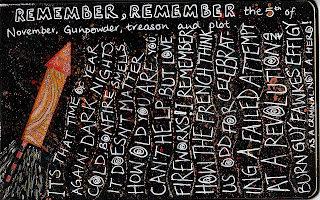 REMEMBER, REMEMBER the 5th of
November, Gunpowder, treason and plot.
IT'S THAT TIME OF YEAR
AGAIN. DARK NIGHTS,
COLD, BONFIRE SMELLS.
IT DOESN'T MATTER
HOW OLD YOU ARE. YOU
CAN'T HELP BUT LOVE
FIREWORKS! I REMEMBER
HOW THE FRENCH THINK
US ODD FOR CELEBRAT
ING A FAILED ATTEMPT
AT A REVOLUTION AND
BURN GUY FAWKS EFFIGY
NOT A HERO!